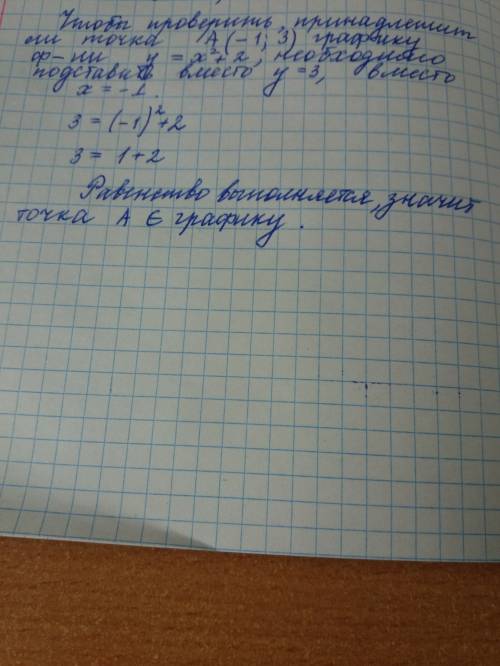 Чтобы проверить, принадлежит
ли точка А(-1; 3) графику
ф-ии y = x²+2, необходимо
подставить вместо y = 3, вместо
x = -1.
3 = (-1)²+2
3 = 1+2
Равенство выполняется, значит
точка А ∈ графику.